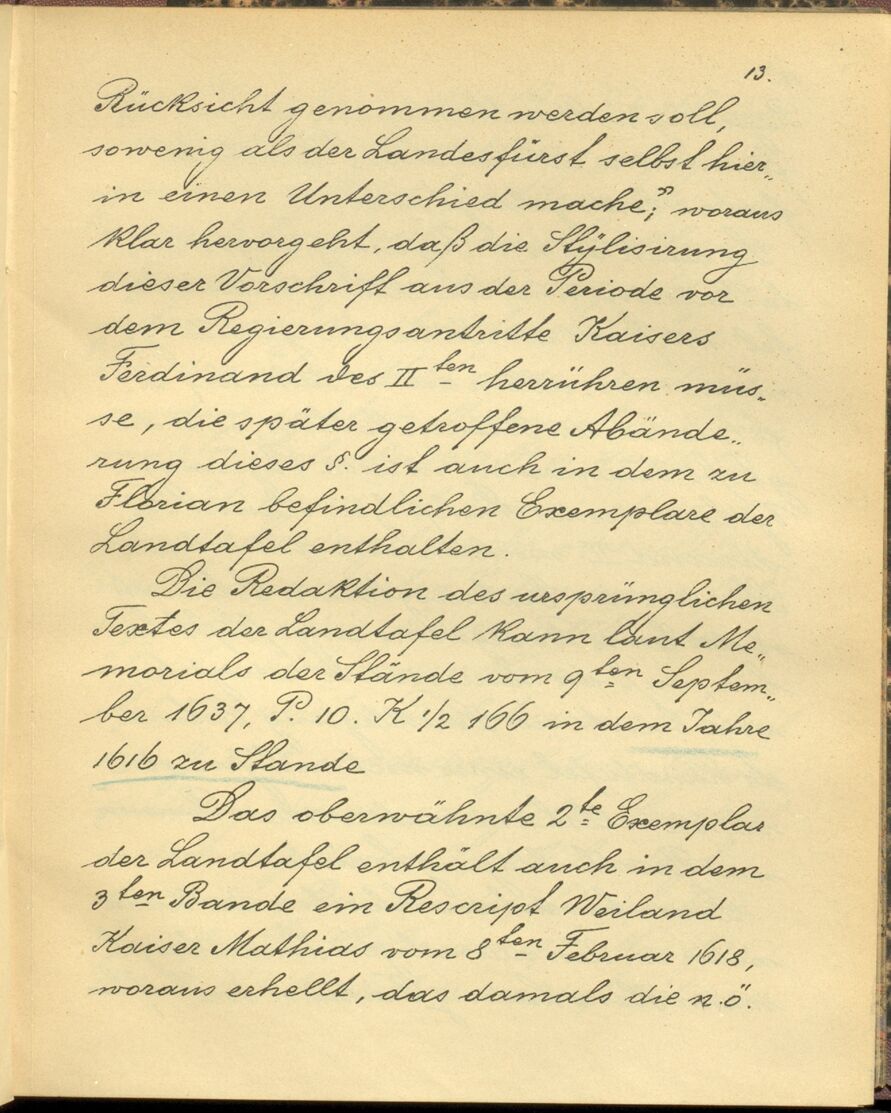 13.
Rücksicht genommen werden soll,
sowenig als der Landesfürst selbst hier„
in einen Unterschied mache;" woraus
klar hervorgeht, daß die Stÿlisirung
dieser Vorschrift aus der Periode vor
dem Regierungsantritte Kaisers
Ferdinand des II ten herrühren müs„
se, die später getroffene Abände„
rung dieses §. ist auch in dem zu
Florian befindlichen Exemplare der
Landtafel enthalten.
Die Redaktion des ursprünglichen
Textes der Landtafel kann laut Me„
morials der Stände vom 9 ten Septem„
ber 1637, P. 10. K 1/2 166 in dem Jahre
1616 zu Stande
Das oberwähnte 2 te Exemplar
der Landtafel enthält auch in dem
3 ten Bande ein Rescript Weiland
Kaiser Mathias vom 8 ten Februar 1618,
woraus erhellt, das damals die n.ö.